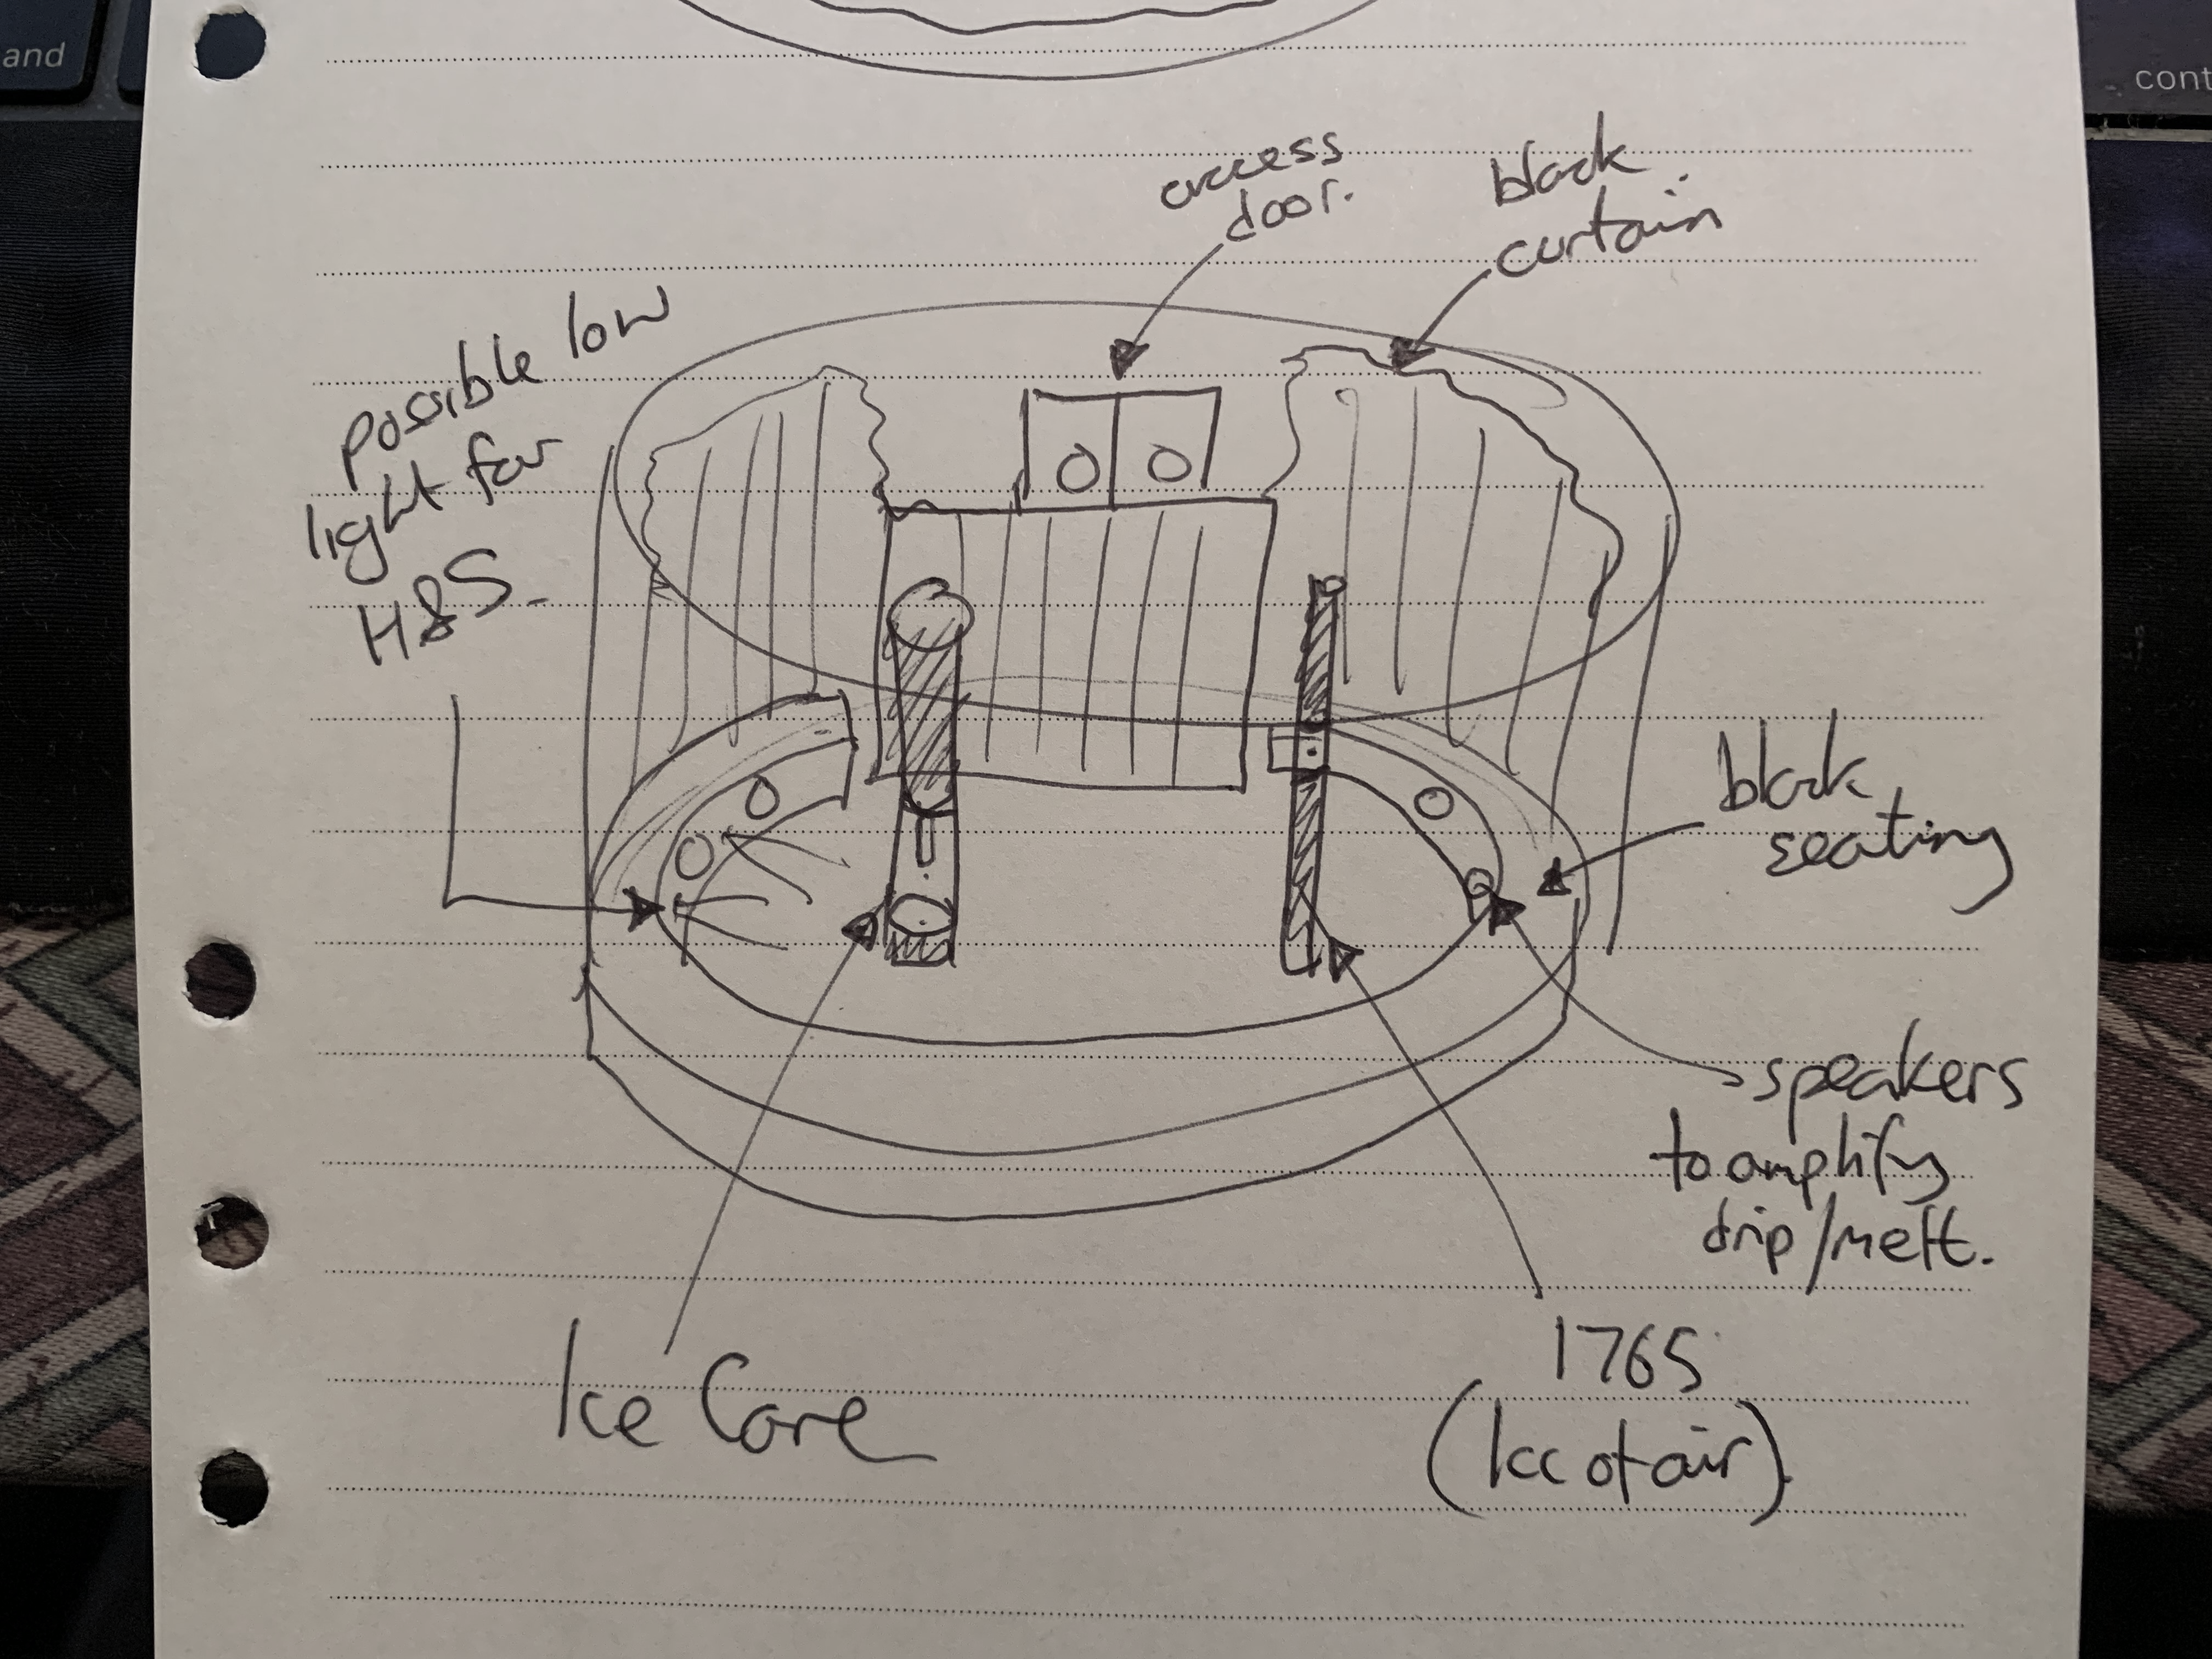 and
cont
access
door.
black
curtain
possible low
light for
H&S.
black
seating
speakers
to amplify
drip/melt.
Ice Core
1765
(1cc of air).